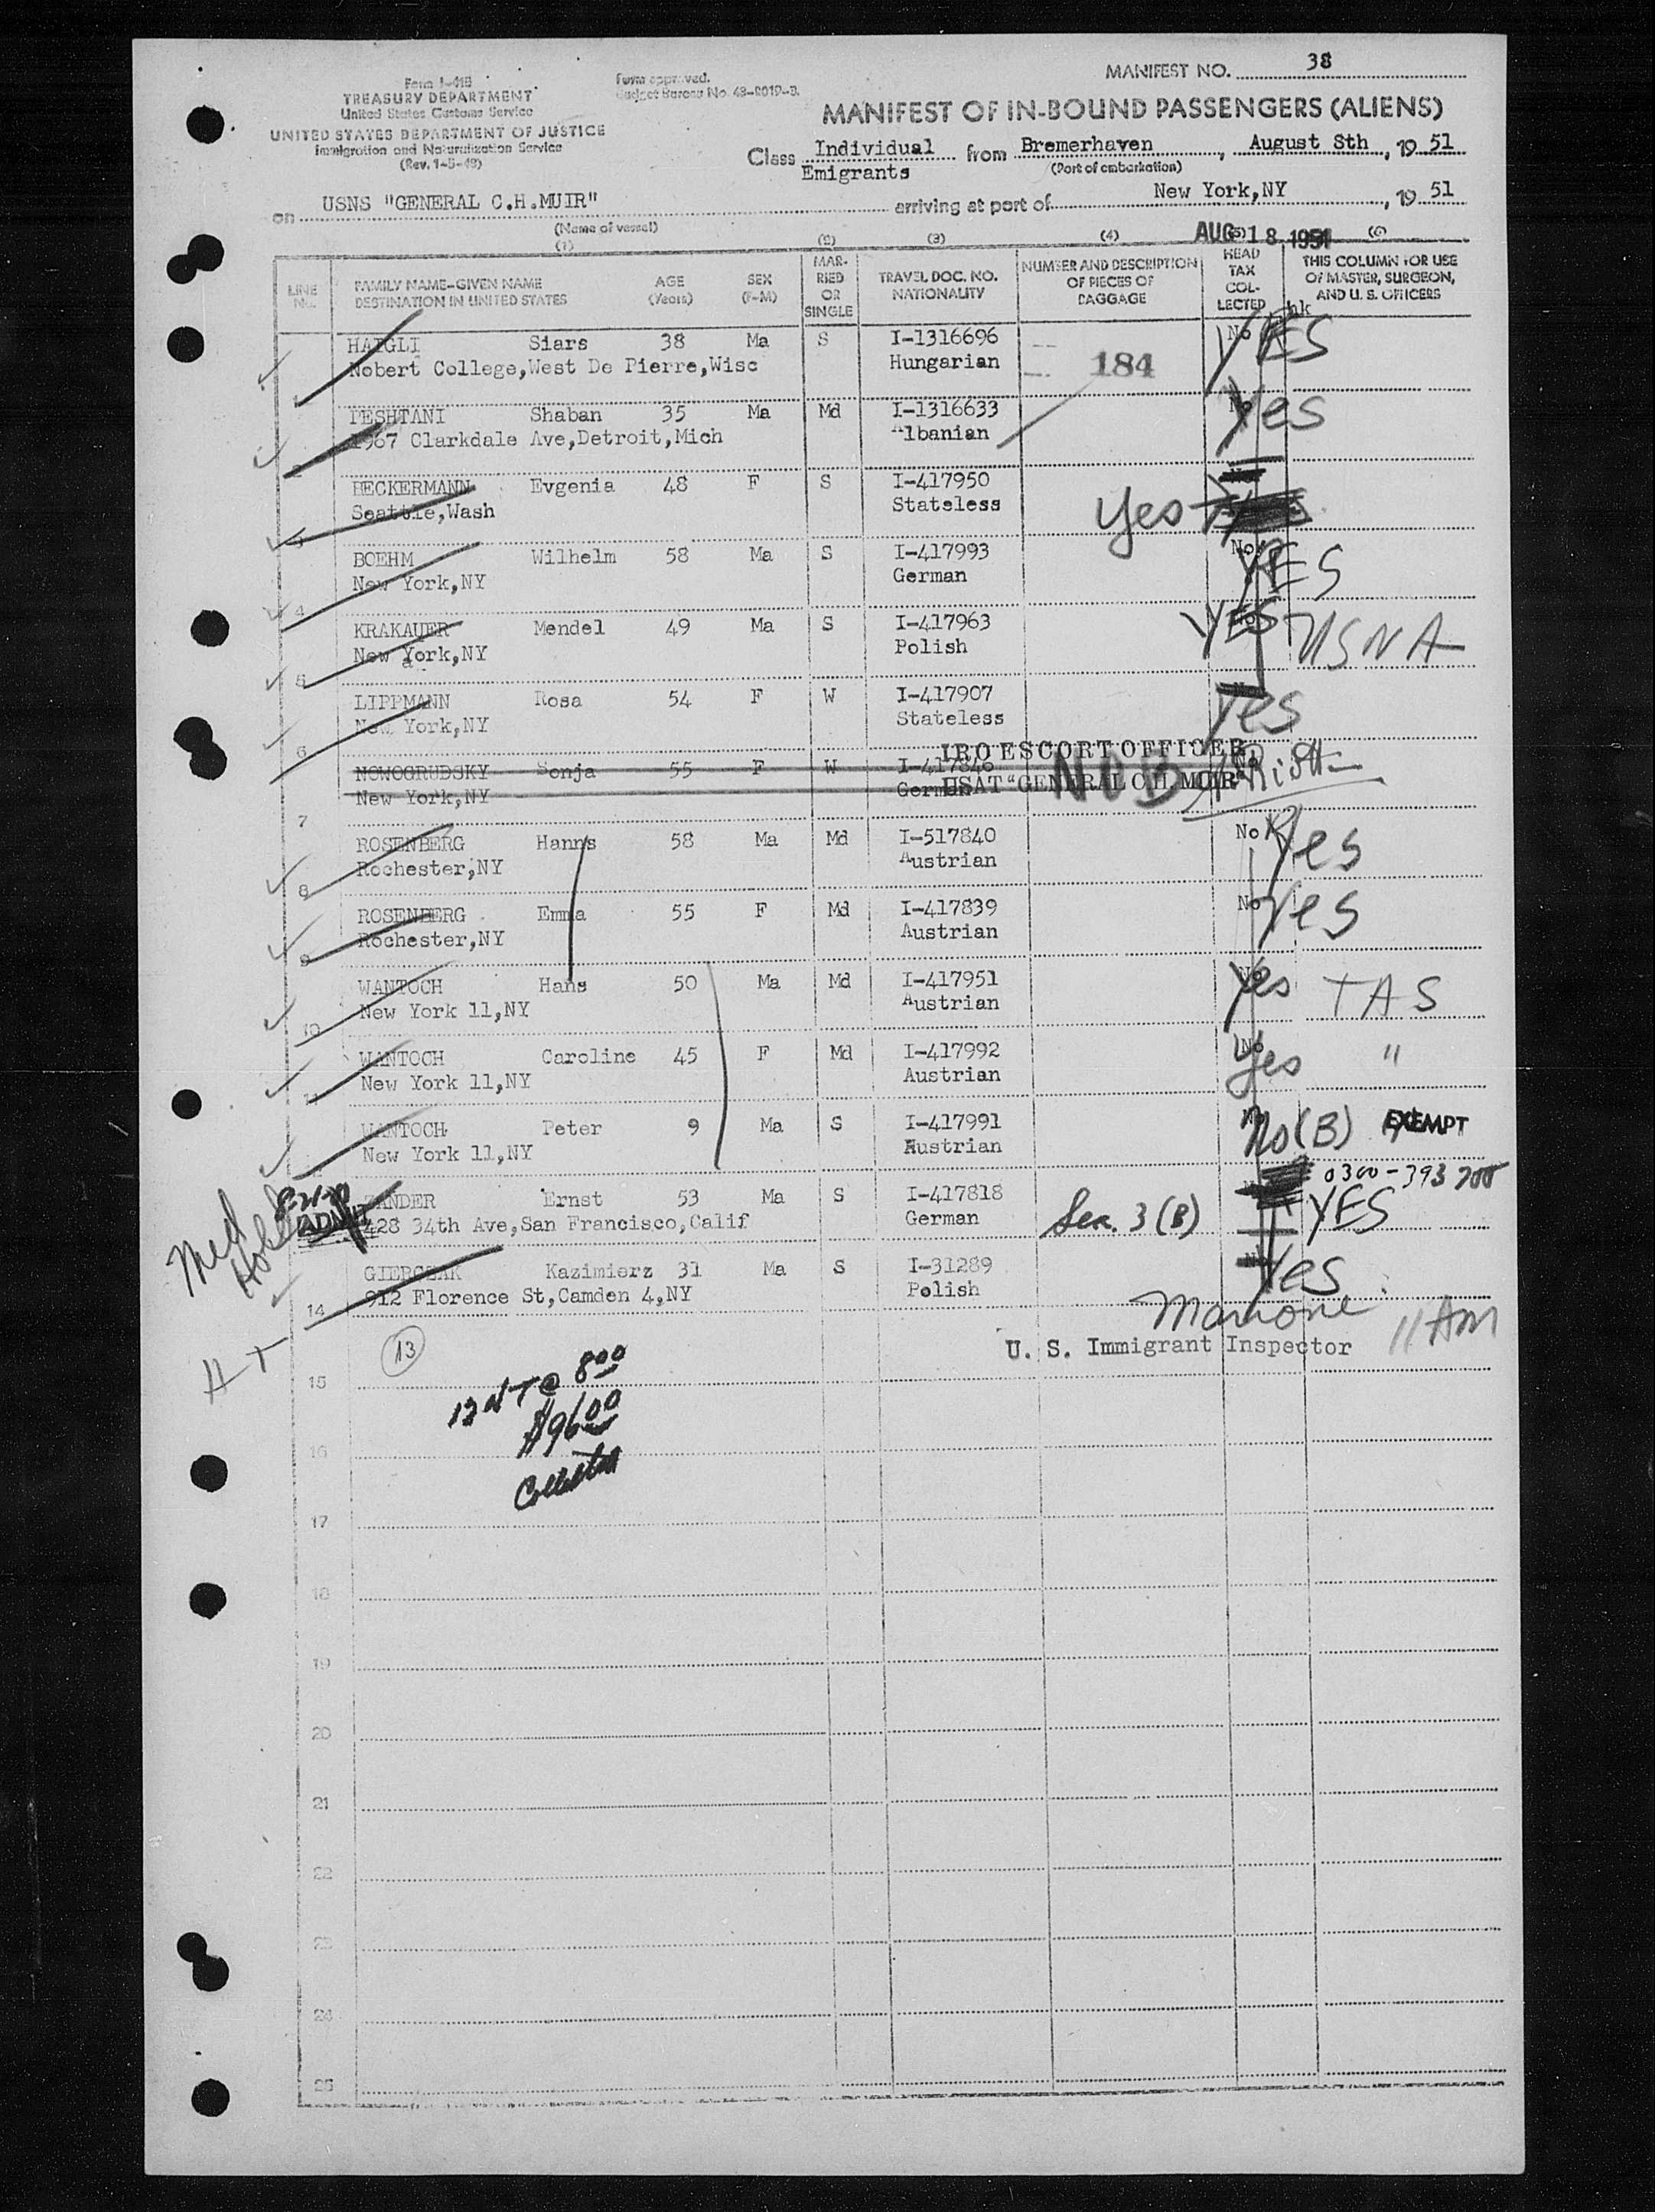 MANIFEST NO. 38
Form I-418
TREASURY DEPARTMENT
United States Customs Service
UNITED STATES DEPARTMENT OF JUSTICE
Immigration and Naturalization Service
(Rev. 1-5-48)
Form approved.
Budget Bureau No. 43-R019-3.
MANIFEST OF IN-BOUND PASSENGERS (ALIENS)
Class Individual from Bremerhaven, August 8th, 19 51
Emigrants (Port of embarkation)
on USNS "GENERAL C.H.MUIR" arriving at port of New York,NY, 19 51
(Name of vessel)
AUG 18 1951
(1) (2) (3) (4) (5) (6)
LINE No. FAMILY NAME-GIVEN NAME DESTINATION IN UNITED STATES AGE (Years) SEX (F-M) MARRIED OR SINGLE TRAVEL DOC. NO. NATIONALITY NUMBER AND DESCRIPTION OF PIECES OF BAGGAGE HEAD TAX COLLECTED THIS COLUMN FOR USE OF MASTER, SURGEON, AND U. S. OFFICERS
HAIGLI Siars 38 Ma S I-1316696 No YES
Nobert College,West De Pierre,Wisc Hungarian 184
1
PESHTANI Shaban 35 Ma Md I-1316633 No Yes
1967 Clarkdale Ave,Detroit,Mich Albanian
2
BECKERMANN Evgenia 48 F S I-417950
Seattle,Wash Stateless Yes
3
BOEHM Wilhelm 58 Ma S I-417993 No YES
New York,NY German
4
KRAKAUER Mendel 49 Ma S I-417963 No YES USNA
New York,NY Polish
5
LIPPMANN Rosa 54 F W I-417907 Yes
New York,NY Stateless
6
IRO ESCORT OFFICER
NOWOGRUDSKY Sonja 55 F W I-417846 No
New York,NY German USAT "GENERAL C.H. MUIR" NOB
7
ROSENBERG Hanns 58 Ma Md I-517840 No Yes
Rochester,NY Austrian
8
ROSENBERG Emma 55 F Md I-417839 No Yes
Rochester,NY Austrian
9
WANTOCH Hans 50 Ma Md I-417951 No Yes TAS
New York 11,NY Austrian
10
WANTOCH Caroline 45 F Md I-417992 No Yes "
New York 11,NY Austrian
11
WANTOCH Peter 9 Ma S I-417991 No (B) EXEMPT
New York 11,NY Austrian
0300-393 700
ZANDER Ernst 53 Ma S I-417818 YES
428 34th Ave,San Francisco,Calif German Sec. 3 (B)
Med Hold ADMIT
GIERCZAK Kazimierz 31 Ma S I-31289 Yes
912 Florence St,Camden 4,NY Polish
14
U. S. Immigrant Inspector 11 AM
13
15
12 HT @ 8 00
$96 00
Collected
16
17
18
19
20
21
22
23
24
25